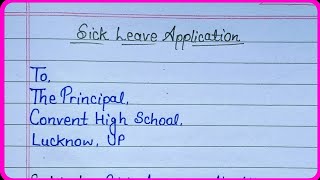 Sick Leave Application
To,
The Principal,
Convent High School,
Lucknow, UP